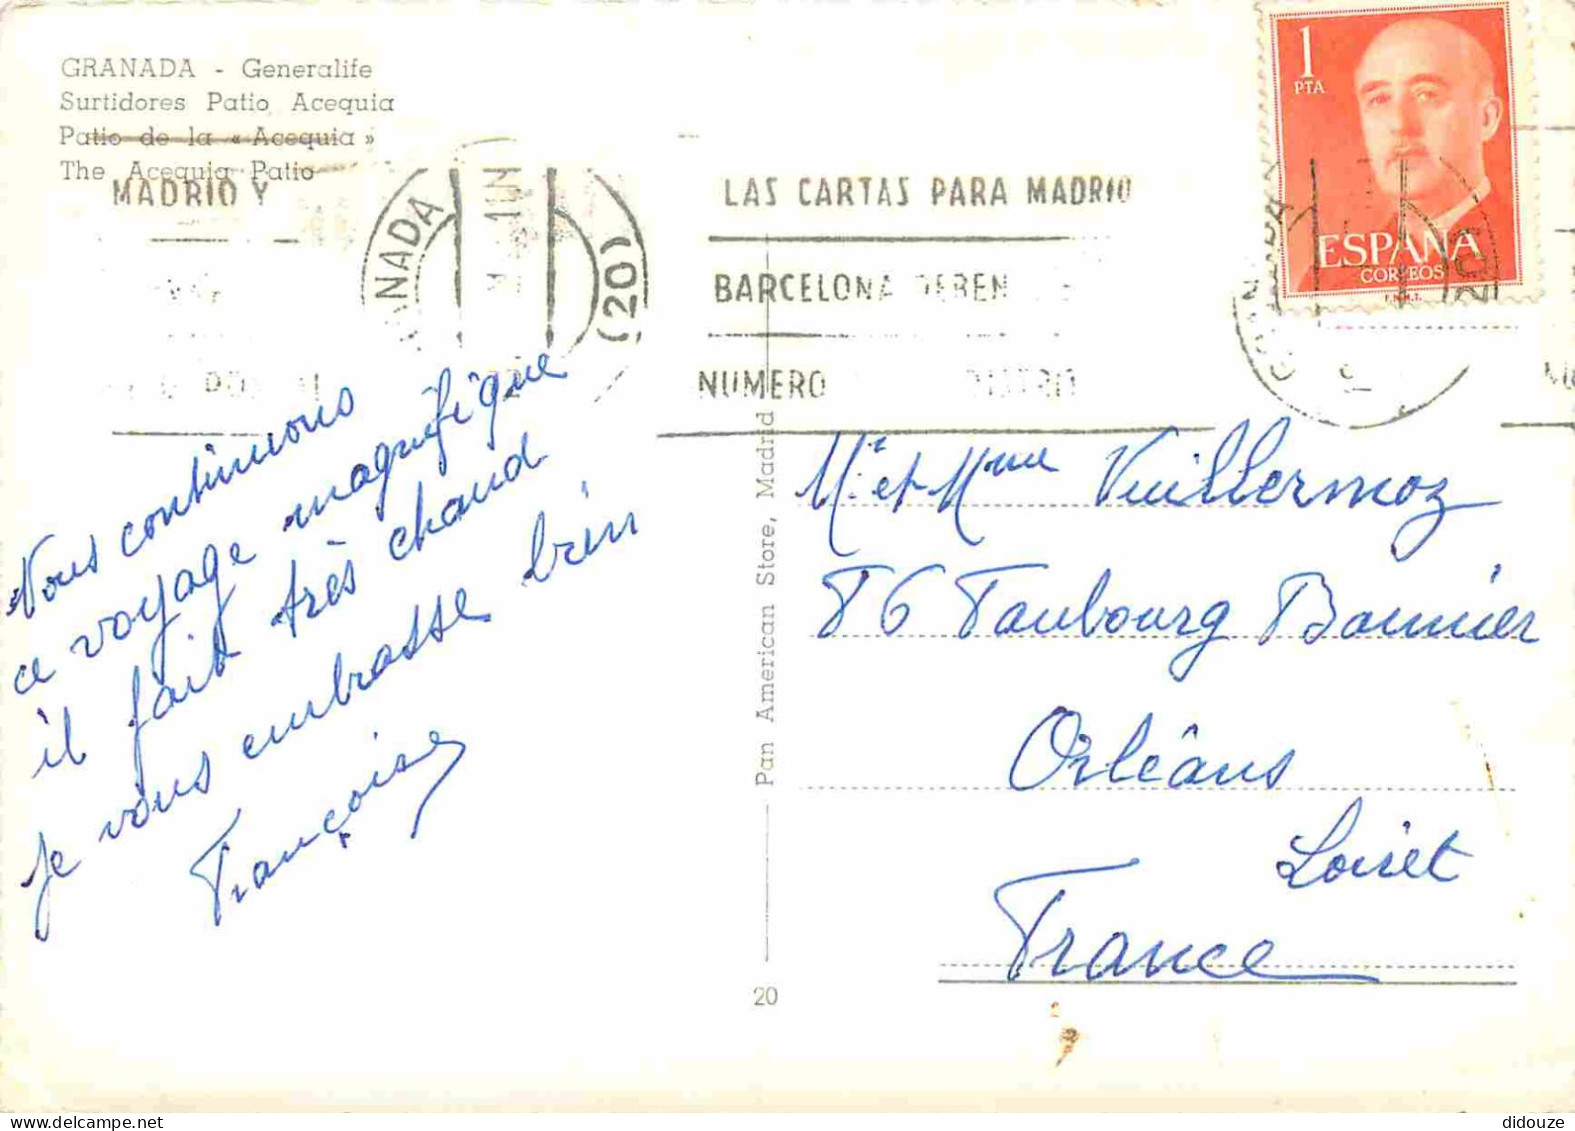 GRANADA - Generalife
Surtidores Patio Acequia
Patio de la « Acequia »
The Acequia Patio
MADRID Y
(20)
LAS CARTAS PARA MADRID
BARCELONA DEBEN
NUMERO
1
PTA
ESPAÑA
CORREOS
F.N.M.T.
Nous continuons
ce voyage magnifique
il fait très chaud
je vous embrasse bien
Françoise
Pan American Store, Madrid
20
Mr et Mme Vuillermoz
86 Faubourg Bannier
Orléans
Loiret
France
didouze